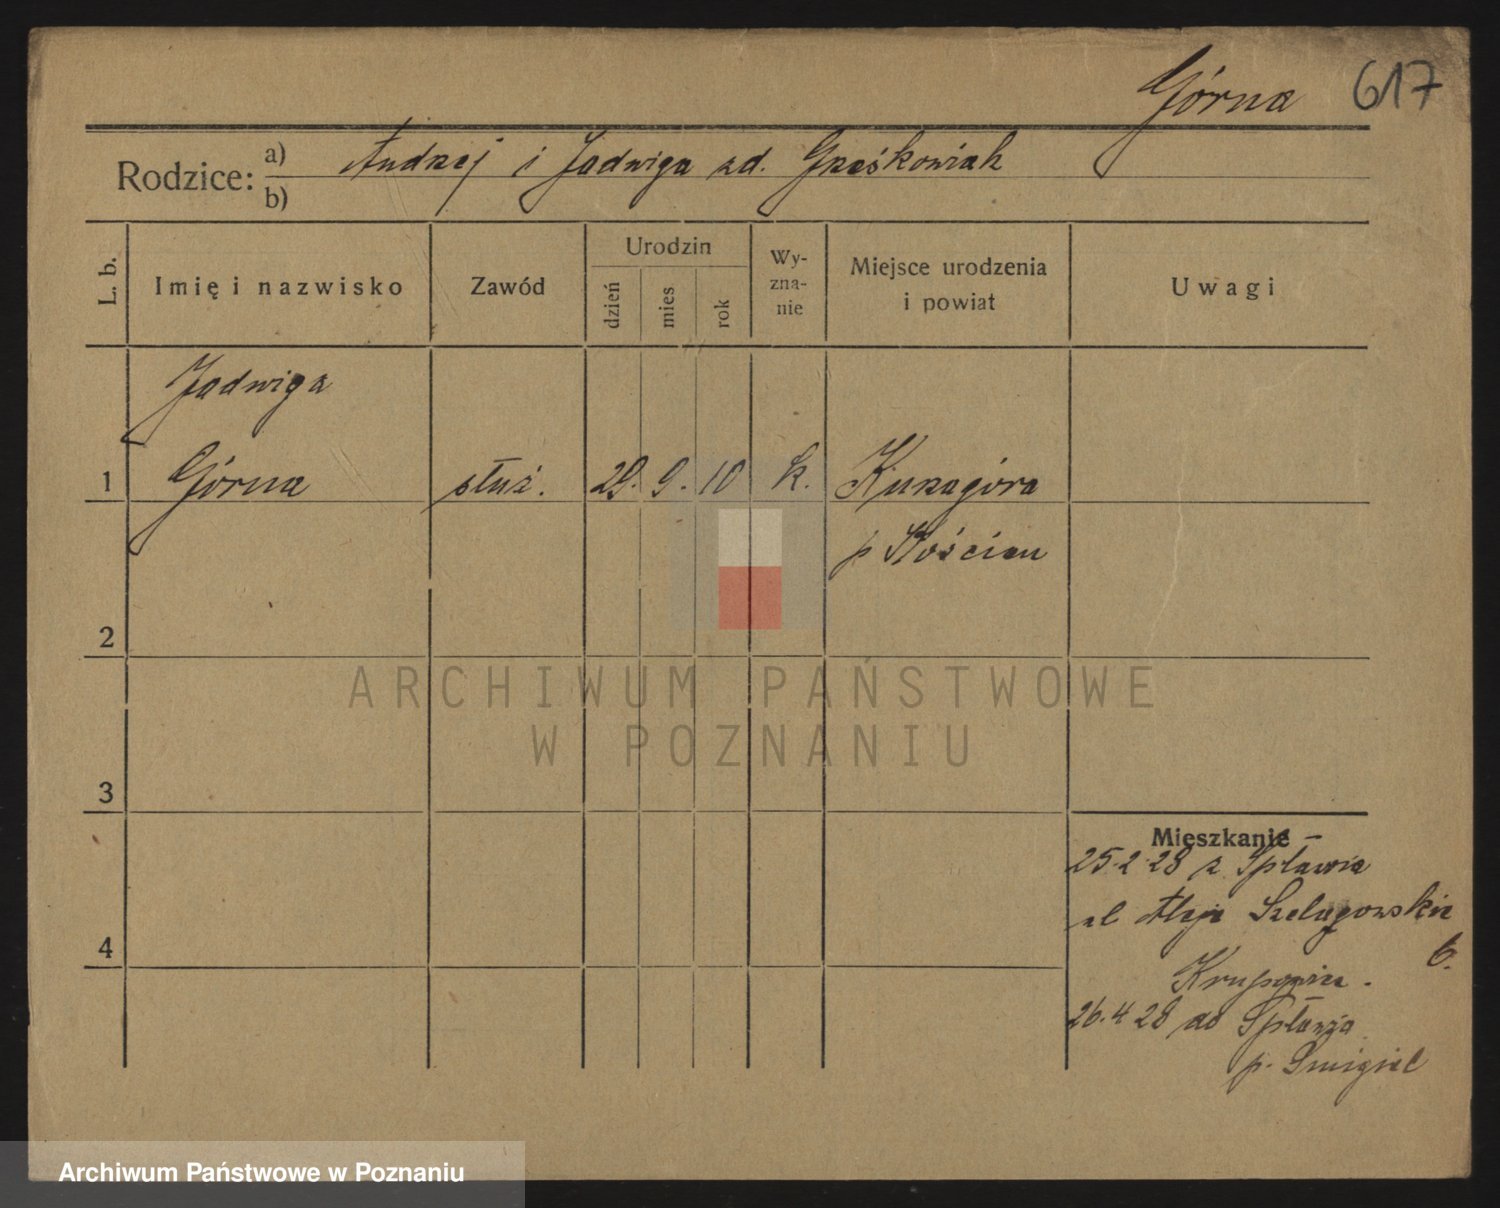 Górna 617
Rodzice: a) Andrzej i Jadwiga zd. Grześkowiak
b)
L. b. Imię i nazwisko Zawód Urodzin dzień mies rok Wy-zna-nie Miejsce urodzenia i powiat Uwagi
Jadwiga
1 Górna służ. 29. 9. 10 k. Kunagóra
p Kościan
2
ARCHIWUM PAŃSTWOWE
W POZNANIU
3
Mieszkanie
25.2 28 z Spławia
ul Aleje Szelągowskie
6.
4
26.4 28 do Spławia
p. Śmigiel
Archiwum Państwowe w Poznaniu